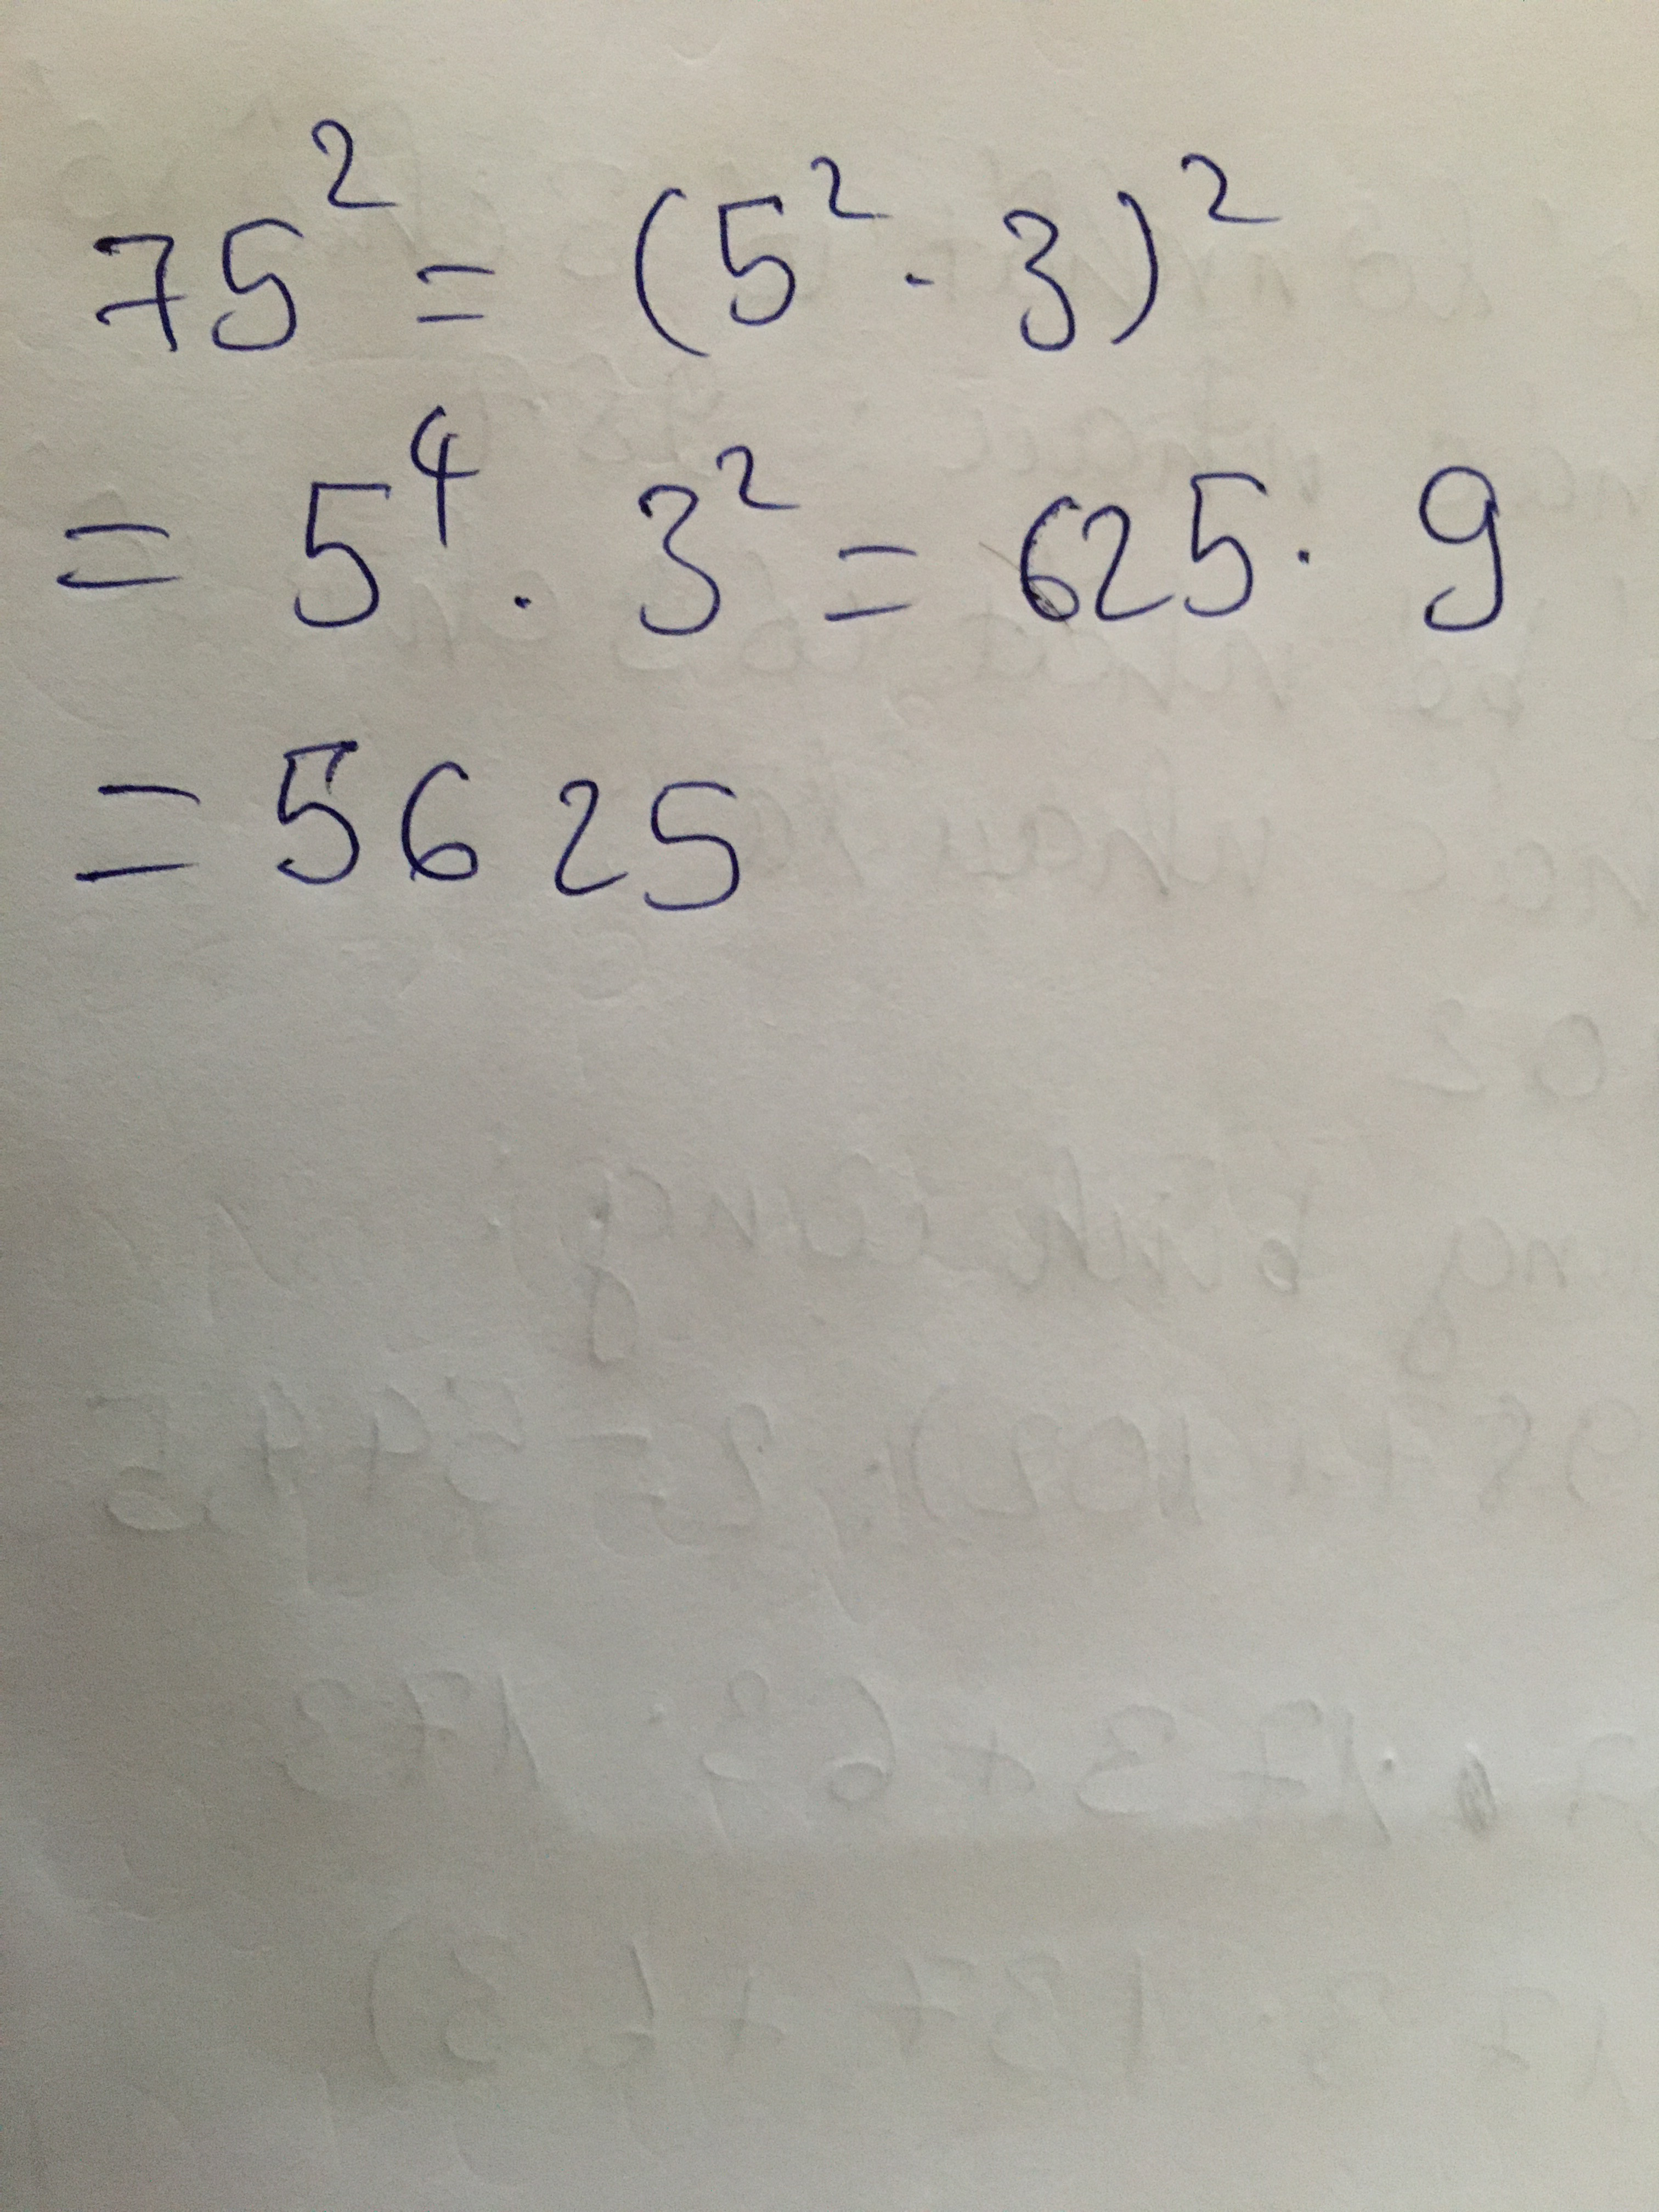 75² = (5² . 3)²
= 5⁴ . 3² = 625 . 9
= 5625